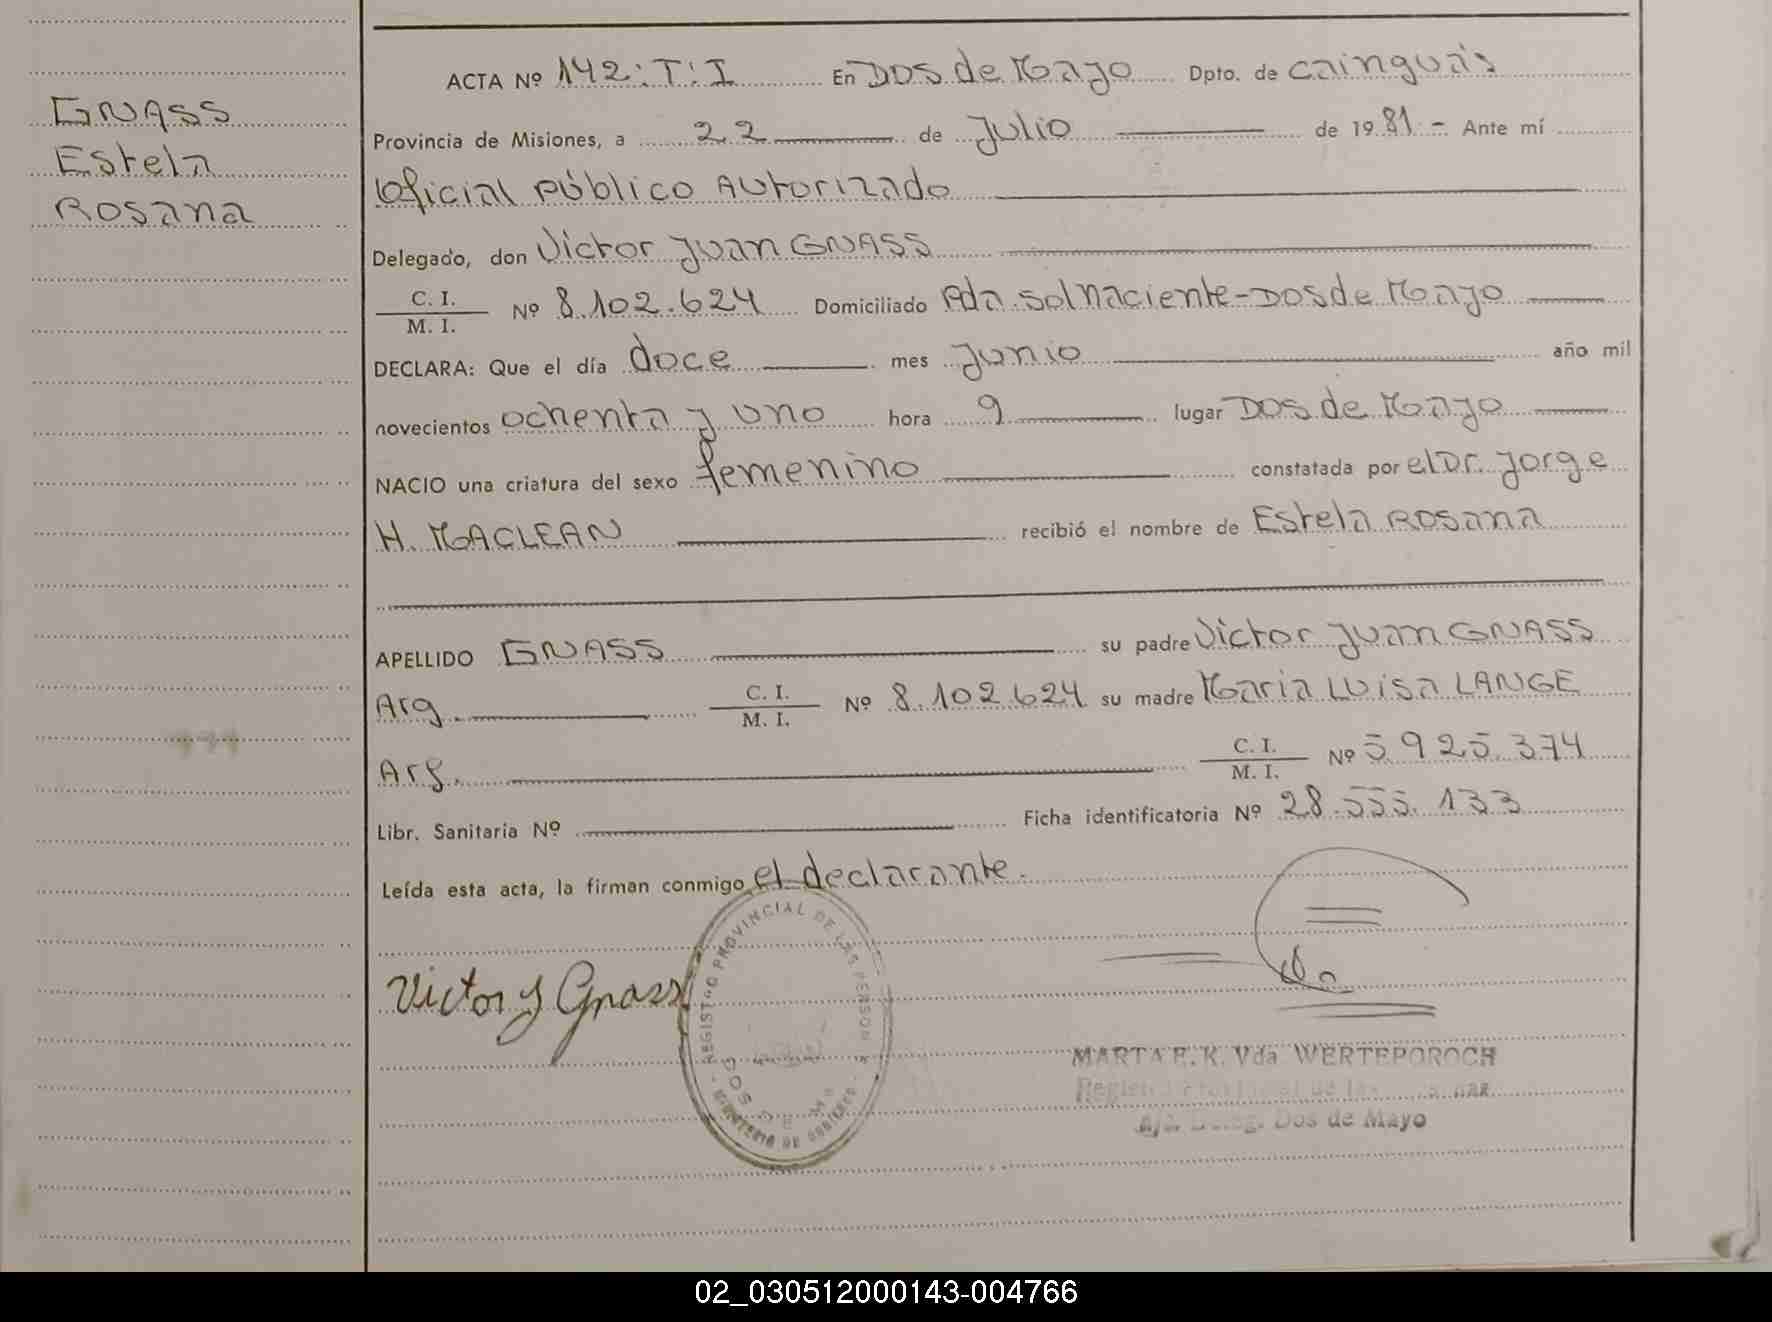 GNASS
Estela
Rosana
ACTA Nº 142:T:I En Dos de Mayo Dpto. de Cainguás
Provincia de Misiones, a 22 de Julio de 1981 - Ante mí
Oficial Público Autorizado
Delegado, don Victor Juan GNASS
C. I.
M. I.
Nº 8.102.624 Domiciliado Pda. Sol Naciente - Dos de Mayo
DECLARA: Que el día doce mes Junio año mil
novecientos ochenta y uno hora 9 lugar Dos de Mayo
NACIO una criatura del sexo femenino constatada por el Dr. Jorge
H. MACLEAN recibió el nombre de Estela Rosana
APELLIDO GNASS su padre Victor Juan GNASS
Arg. C. I.
M. I.
Nº 8.102.624 su madre Maria Luisa LANGE
Arg. C. I.
M. I.
Nº 5 925.374
Libr. Sanitaria Nº Ficha identificatoria Nº 28.555.133
Leída esta acta, la firman conmigo el declarante.
Victor J Gnass
REGISTRO PROVINCIAL DE LAS PERSONAS
DOS DE MAYO
MINISTERIO DE GOBIERNO
MARTA E. K. Vda WERTEPOROCH
Registro Provincial de las
Deleg. Dos de Mayo
02_030512000143-004766